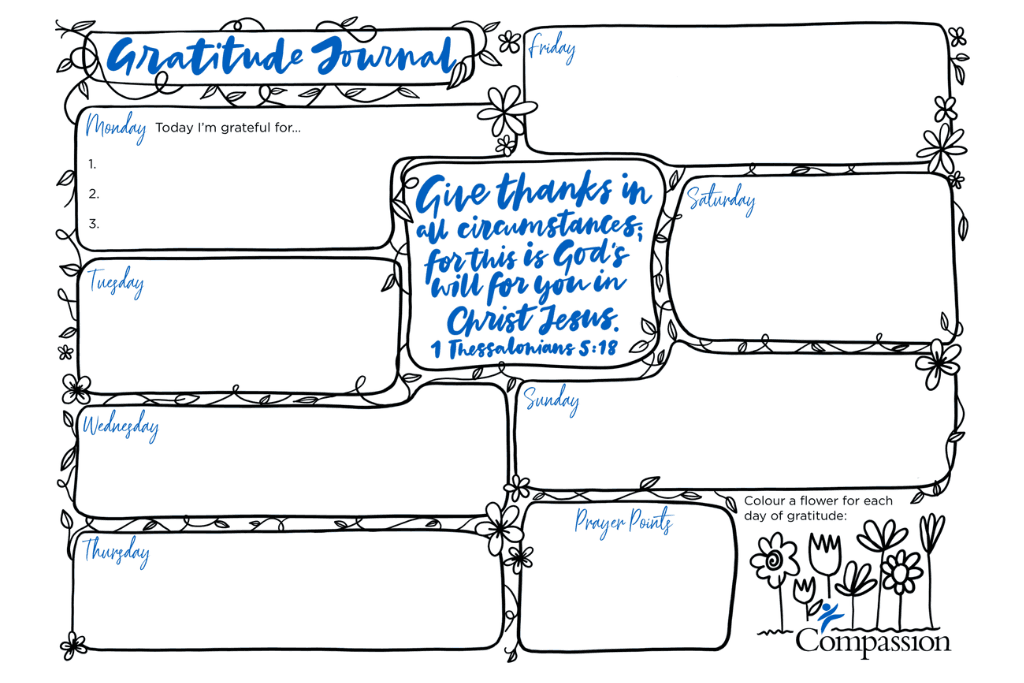 Gratitude Journal
Monday Today I'm grateful for...
1.
2.
3.
Tuesday
Wednesday
Thursday
Give thanks in
all circumstances;
for this is God's
will for you in
Christ Jesus.
1 Thessalonians 5:18
Friday
Saturday
Sunday
Prayer Points
Colour a flower for each
day of gratitude:
Compassion